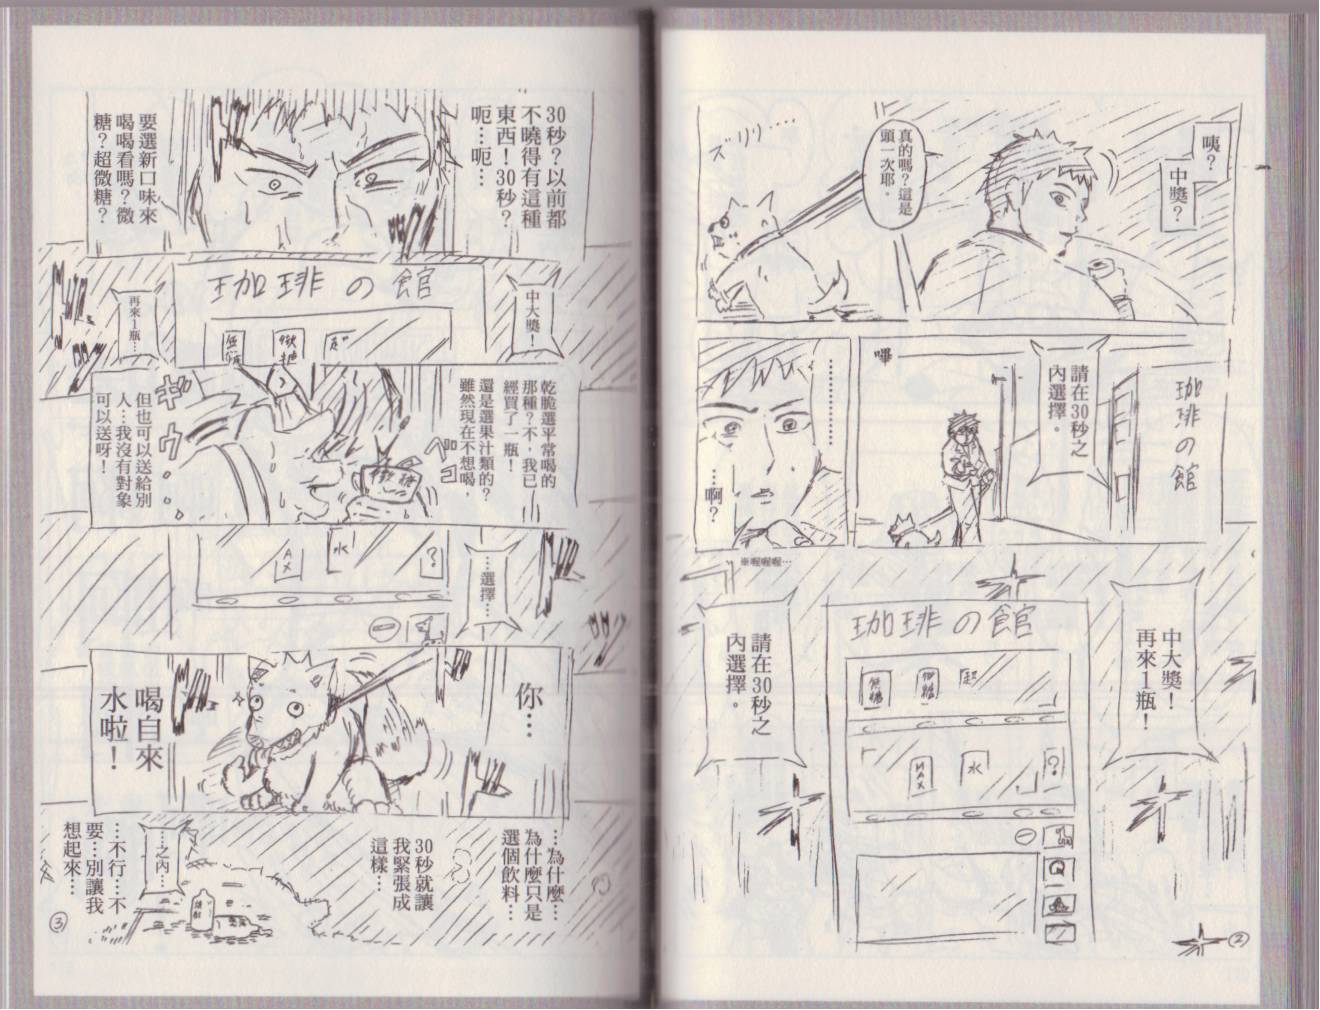 咦？
中獎？
真的嗎？這是
頭一次耶。
ズリリ……
珈琲の館
請在30秒之
內選擇。
嗶
………………
…啊？
※喔喔喔…
中大獎！
再來1瓶！
珈琲の館
無糖
微糖
起
MAX
水
？
請在30秒之
內選擇。
②
30秒？以前都
不曉得有這種
東西！30秒？
呃…呃…
要選新口味來
喝喝看嗎？微
糖？超微糖？
中大獎！
珈琲の館
再來1瓶…
乾脆選平常喝的
那種？不，我已
經買了一瓶！
還是選果汁類的？
雖然現在不想喝，
ペコ
微糖
ギウ・・・
但也可以送給別
人…我沒有對象
可以送呀！
…選擇…
AX
水
？
你…
喝自來
水啦！
…為什麼…
為什麼只是
選個飲料…
30秒就讓
我緊張成
這樣…
……之內…
…不行…不
要…別讓我
想起來…
③